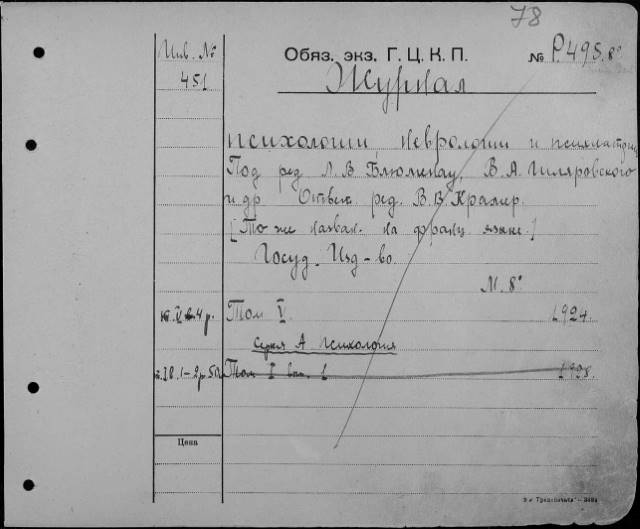 78
Инв. №
451
Обяз. экз. Г. Ц. К. П.
№ Р.495.8°
Журнал
психологии, неврологии и психиатрии
Под ред Л. В Блюменау, В. А. Гиляровского
и др Ответ. ред. В. В. Крамер.
[То же назван. на франц языке.]
Госуд. Изд-во.
М. 8°
т. V 4 р. Том V. 1924.
Серия А Психология
Том I вып. 1 1928.
Цена